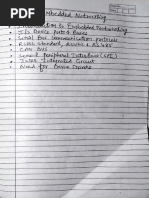 Embedded Networking
• Introduction to Embedded Networking
• I/o Device ports & Buses
• Serial Bus communication protocols
• RS232 standard, RS422 & RS485
• CAN Bus
• Serial Peripheral Interface (SPI)
• Inter Integrated Circuit
• Need for Device Drivers